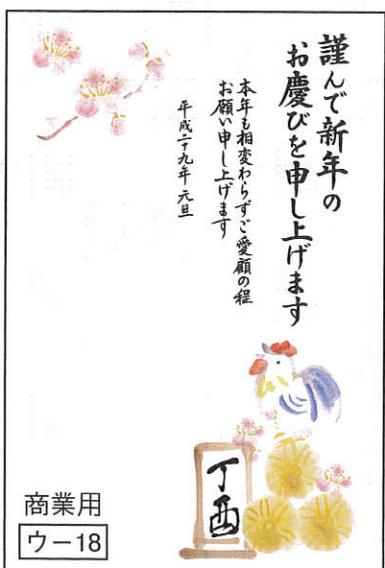 謹んで新年の
お慶びを申し上げます
本年も相変わらずご愛顧の程
お願い申し上げます
平成二十九年元旦
丁酉
商業用
ウー18